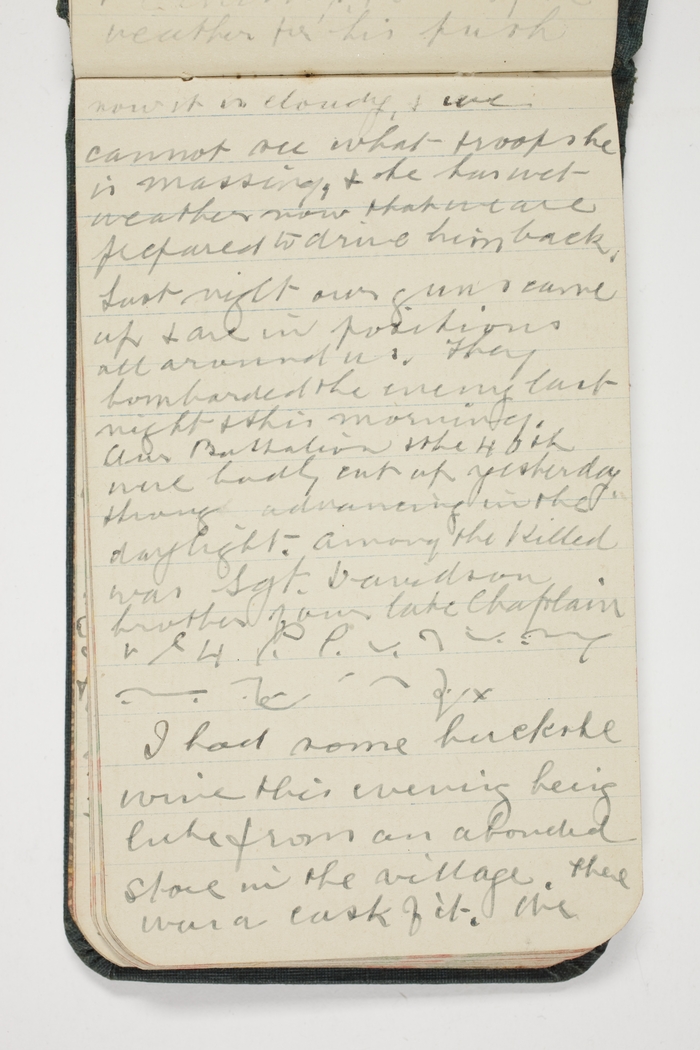 weather for his push
now it is cloudy, & we
cannot see what troops he
is massing, & he has wet
weather now that we are
prepared to drive him back.
Last night our guns came
up & are in positions
all around us. They
bombarded the enemy last
night & this morning.
Our Battalion & the 48th
were badly cut up yesterday
through advancing in the
daylight. Among the Killed
was Sgt. Davidson
brother of our late Chaplain
I had some buckshe
wine this evening being
from an abonded
store in the village. There
was a cask of it. We